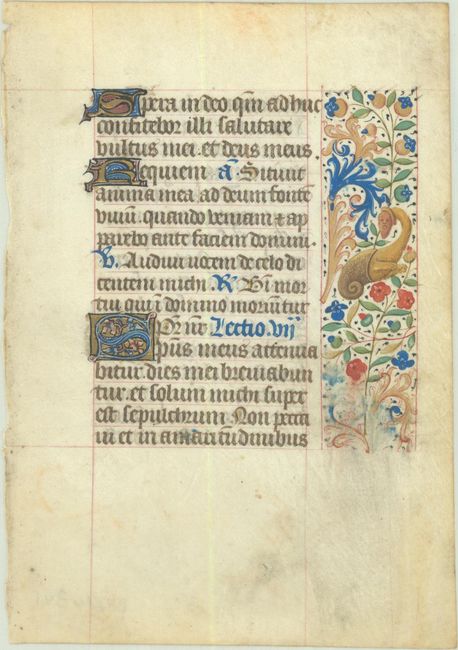 Spera in deo q̄m adhuc
confitebor illi salutare
vultus mei. et deus meus.
Requiem. a͞. Sitiuit
anima mea ad deum fontē
viuū. quando veniam ⁊ ap
parebo ante faciem domini.
V. Audiui vocem de celo di
centem michi. R. Bi mor
tui qui ī domino moriūtur
Pr̄ nr̄ Lectio. vij
Sp̄us meus attenua
bitur. dies mei breviabun
tur. et solum michi super
est sepulchrum. Non pecca
ui et in amaritūdinibus